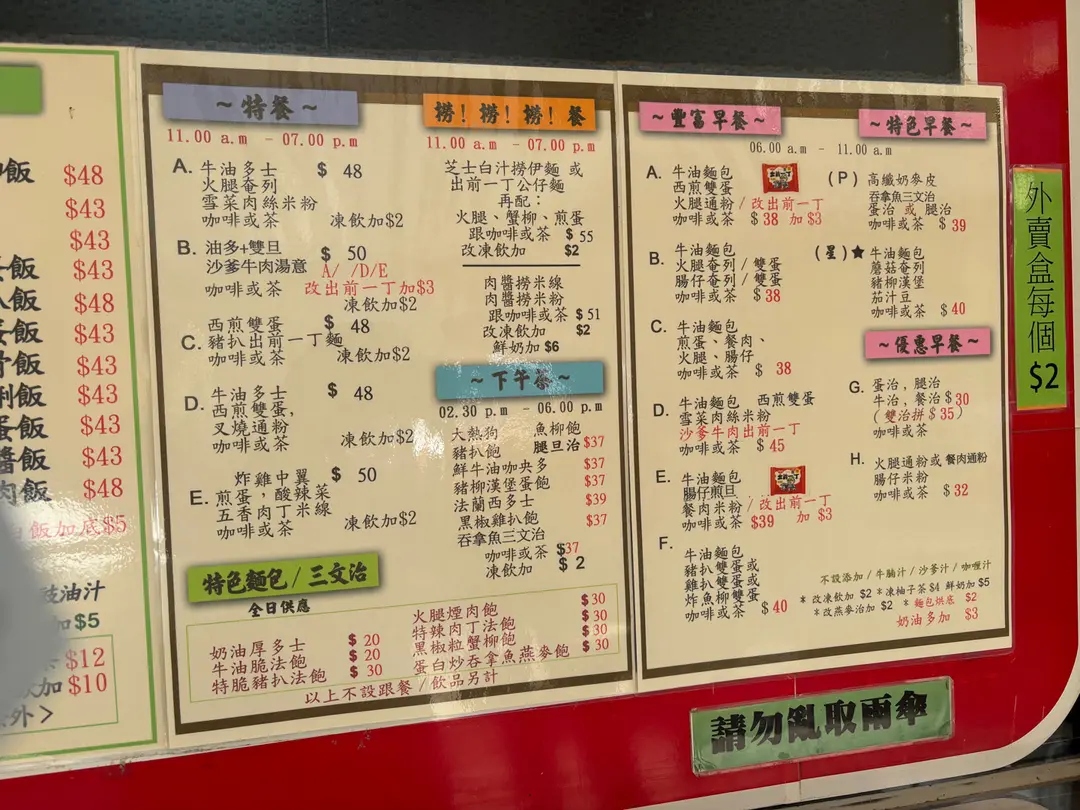 飯 $48
$43
$43
飯 $43
飯 $48
飯 $43
飯 $43
飯 $43
蛋飯 $43
醬飯 $43
肉飯 $48
飯加底$5
豉油汁
加$5
$12
加 $10
外>
~特餐~
11.00 a.m - 07.00 p.m
A. 牛油多士 $ 48
火腿奄列
雪菜肉絲米粉
咖啡或茶 凍飲加$2
B. 油多+雙旦 $ 50
沙爹牛肉湯意 A/ /D/E
咖啡或茶 改出前一丁加$3
凍飲加$2
西煎雙蛋 $ 48
C. 豬扒出前一丁麵
咖啡或茶 凍飲加$2
D. 牛油多士 $ 48
西煎雙蛋,
叉燒通粉
咖啡或茶 凍飲加$2
炸雞中翼 $ 50
E. 煎蛋,酸辣菜
五香肉丁米線
咖啡或茶 凍飲加$2
特色麵包/三文治
全日供應
奶油厚多士 $ 20
牛油脆法飽 $ 20
特脆豬扒法飽 $ 30
火腿煙肉飽 $ 30
特辣肉丁法飽 $ 30
黑椒粒蟹柳飽 $ 30
蛋白炒吞拿魚燕麥飽 $ 30
以上不設跟餐/飲品另計
撈!撈!撈!餐
11.00 a.m - 07.00 p.m
芝士白汁撈伊麵 或
出前一丁公仔麵
再配:
火腿、蟹柳、煎蛋
跟咖啡或茶 $ 55
改凍飲加 $2
肉醬撈米線
肉醬撈米粉
跟咖啡或茶 $ 51
改凍飲加 $2
鮮奶加 $6
~下午茶~
02.30 p.m - 06.00 p.m
大熱狗 魚柳飽
豬扒飽 腿旦治 $37
鮮牛油咖央多 $37
豬柳漢堡蛋飽 $37
法蘭西多士 $39
黑椒雞扒飽 $37
吞拿魚三文治
咖啡或茶 $37
凍飲加 $ 2
~豐富早餐~
~特色早餐~
06.00 a.m - 11.00 a.m
A. 牛油麵包
西煎雙蛋
火腿通粉/改出前一丁
咖啡或茶 $ 38 加 $3
B. 牛油麵包
火腿奄列/雙蛋
腸仔奄列/雙蛋
咖啡或茶 $ 38
C. 牛油麵包
煎蛋、餐肉、
火腿、腸仔
咖啡或茶 $ 38
D. 牛油麵包 西煎雙蛋
雪菜肉絲米粉
沙爹牛肉出前一丁
咖啡或茶 $ 45
E. 牛油麵包
腸仔煎旦
餐肉米粉/改出前一丁
咖啡或茶 $39 加 $3
F. 牛油麵包
豬扒雙蛋或
雞扒雙蛋或
炸魚柳雙蛋
咖啡或茶 $ 40
(P) 高纖奶麥皮
吞拿魚三文治
蛋治 或 腿治
咖啡或茶 $ 39
(星)★ 牛油麵包
蘑菇奄列
豬柳漢堡
茄汁豆
咖啡或茶 $ 40
~優惠早餐~
G. 蛋治,腿治
牛治,餐治 $ 30
(雙治拼 $ 35)
咖啡或茶
H. 火腿通粉或 餐肉通粉
腸仔米粉
咖啡或茶 $ 32
不設添加/牛腩汁/沙爹汁/咖喱汁
* 改凍飲加 $2 * 凍柚子茶 $4 鮮奶加 $5
* 改燕麥治加 $2 * 麵包烘底 $2
奶油多加 $3
外賣盒每個
$2
請勿亂取雨傘